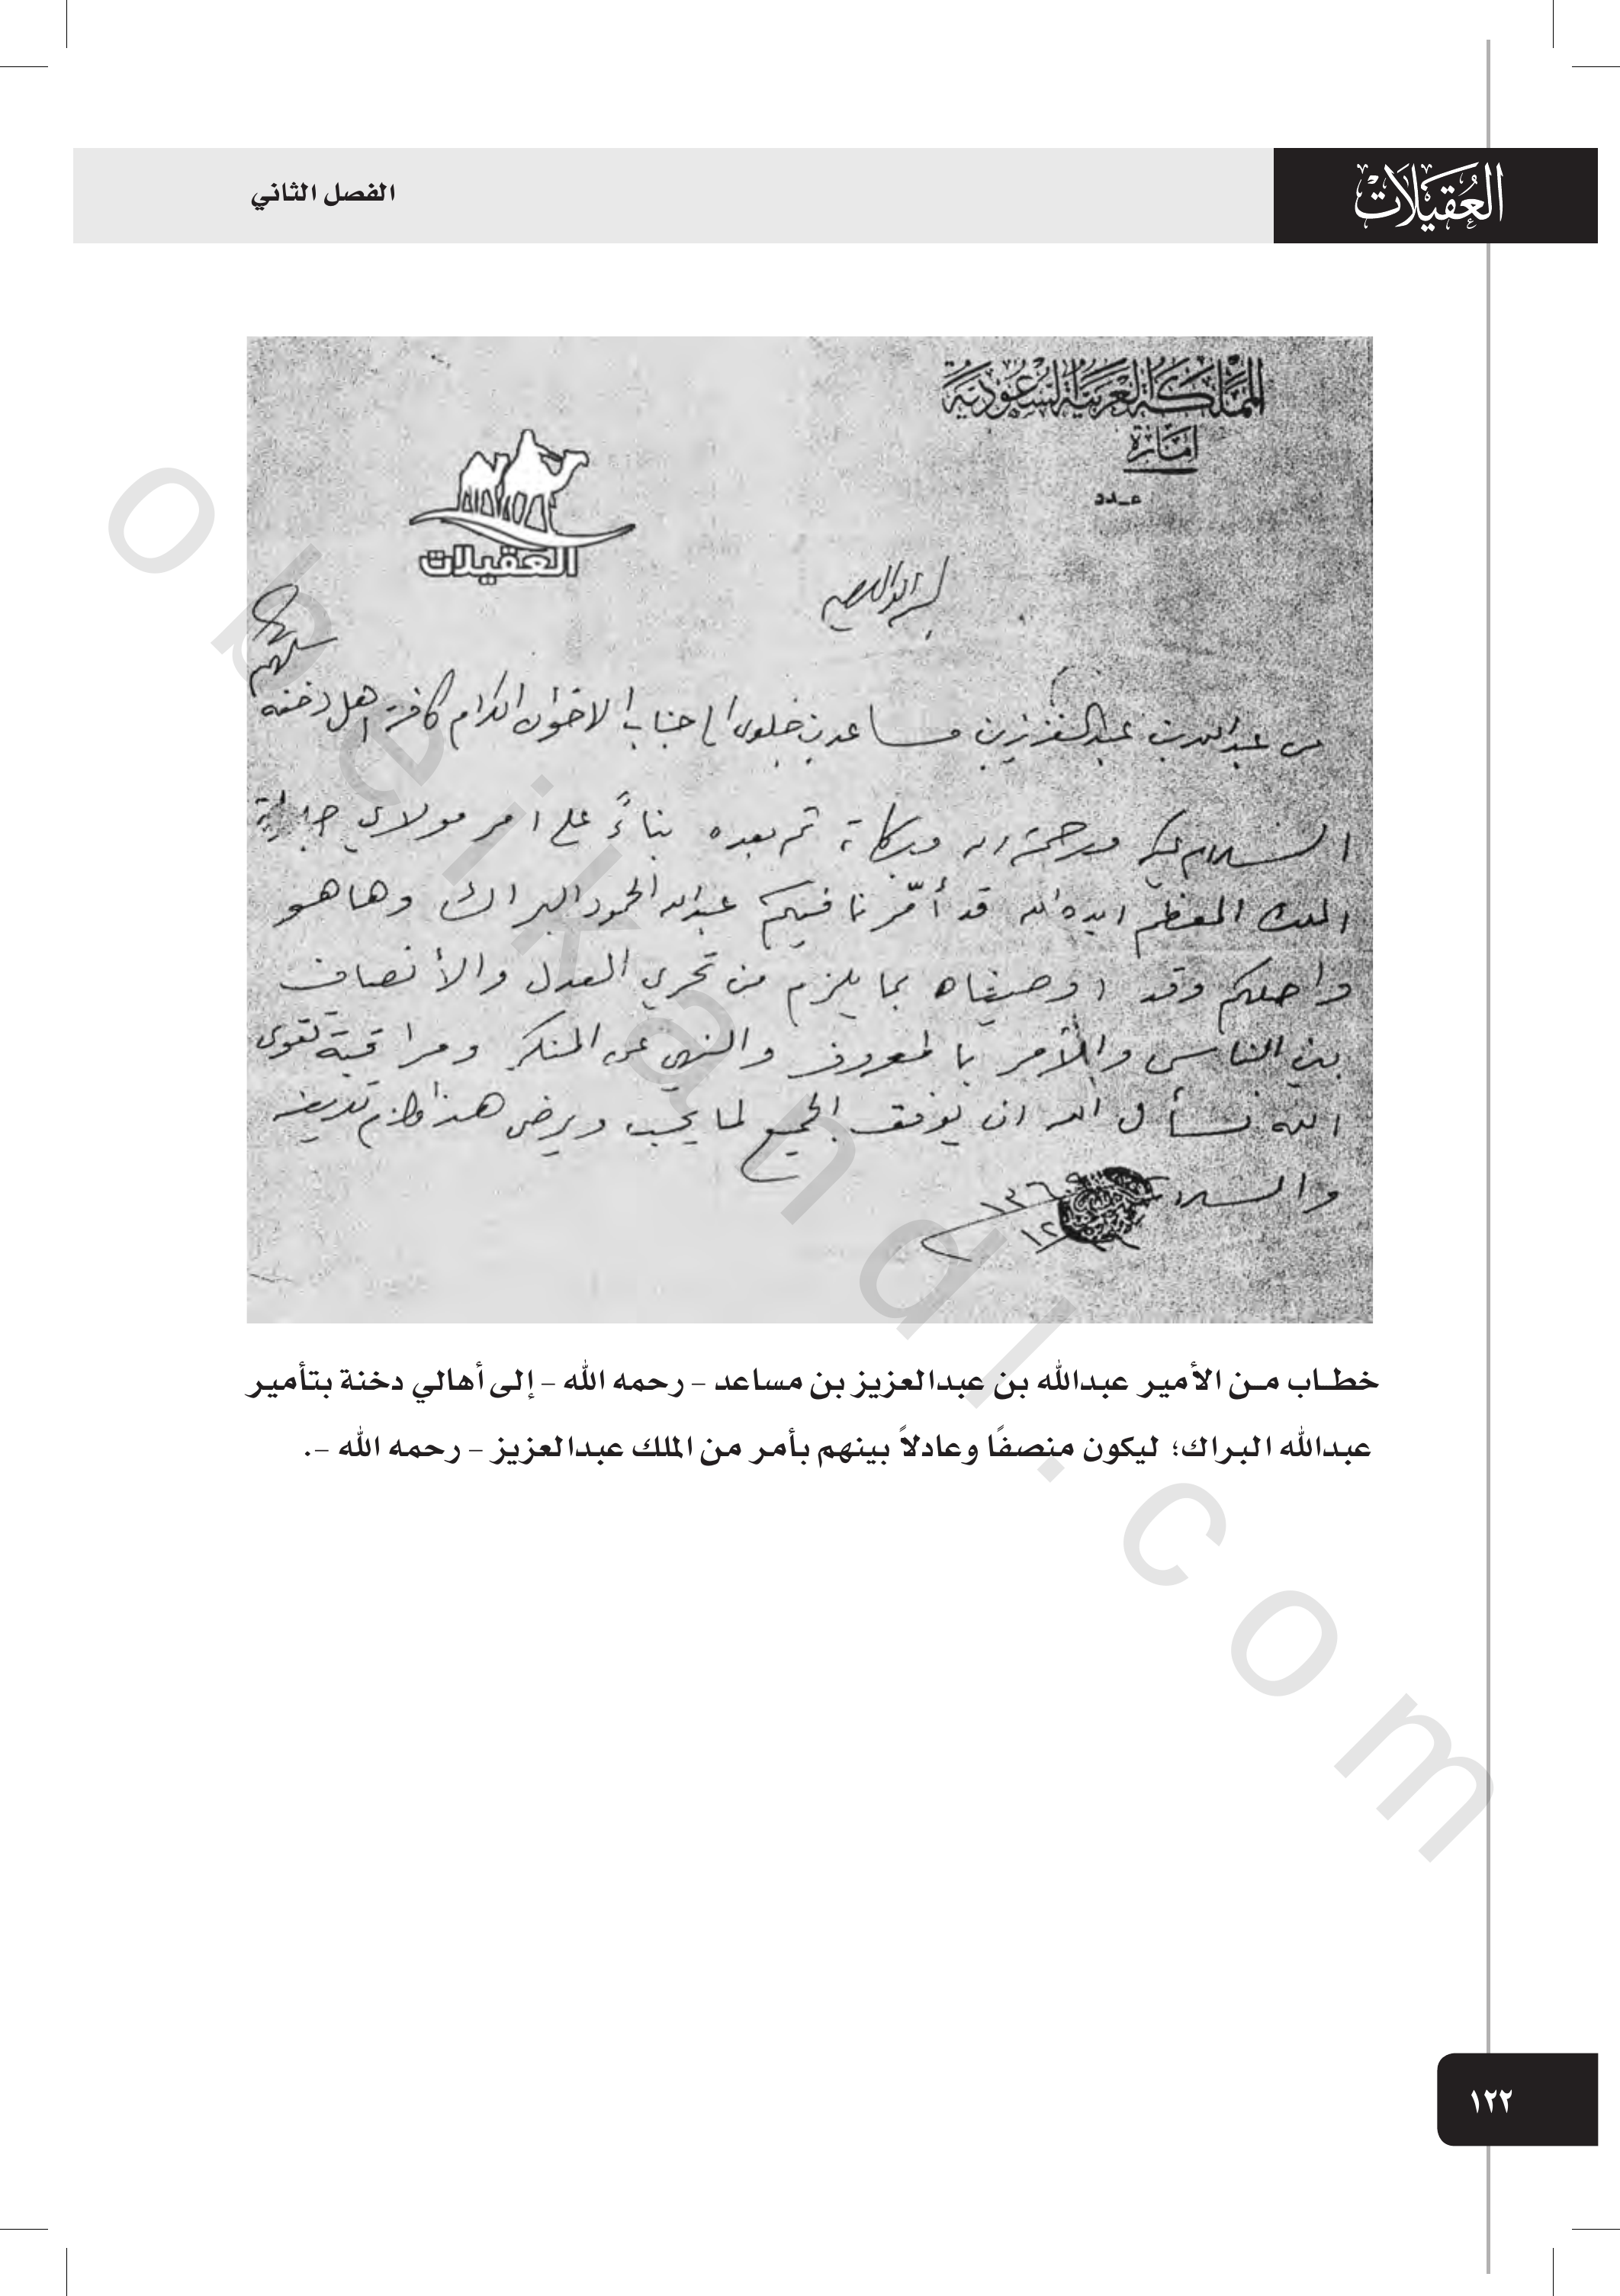 العُقيلات
الفصل الثاني
المملكة العربية السعودية
امارة
عدد
العقيلات
من عبدالله بن عبدالعزيز بن مساعد بن جلوي الى جناب الاخوان الكرام كافة اهل دخنه
سلمهم
السلام عليكم ورحمة الله وبركاته ثم بعده بناءً على امر مولاي جلالة
الملك المعظم ايده الله قد أمّرنا فيكم عبدالله الحمود البراك وها هو
واصلكم وقد اوصيناه بما يلزم من تحري العدل والأنصاف
بين الناس والأمر بالمعروف والنهي عن المنكر ومراقبة تقوى
الله نسأل الله ان يوفق الجميع لما يحب ويرضى هذا مالزم تعريفه
والسلام
خطـاب مـن الأمير عبدالله بن عبدالعزيز بن مساعد – رحمه الله – إلى أهالي دخنة بتأمير
عبدالله البراك؛ ليكون منصفًا وعادلاً بينهم بأمر من الملك عبدالعزيز – رحمه الله –.
obeikandl.com
١٢٢